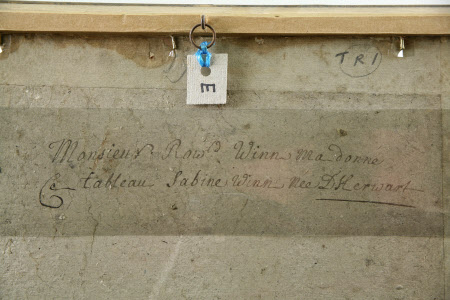 TR1
E
Monsieur Row.d Winn ma donne
Ce tableau Sabine Winn nee D'Herwart